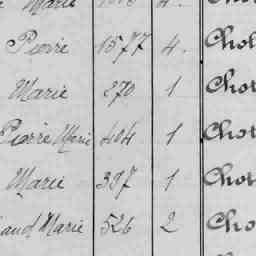 Marie
Pierre 1577 4. Chol
Marie 270 1 Chot
Pierre Marie 404 1 Chot
Marie 397 1 Chot
aud Marie 526 2 Cho